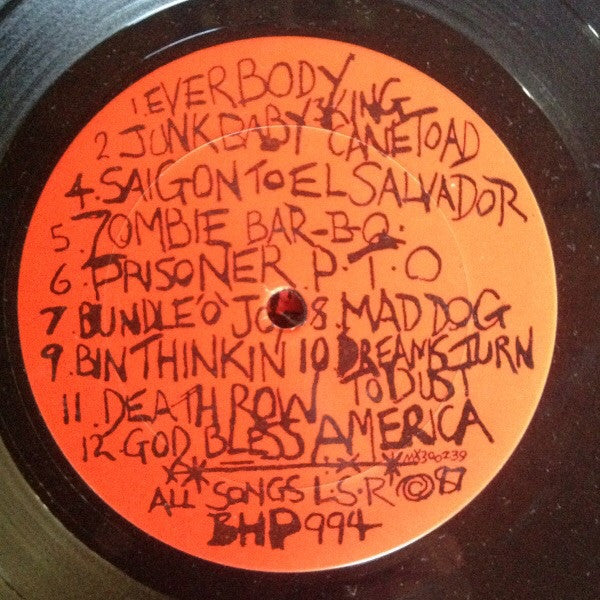 1. EVERBODY
2. JUNKBABY 3KING CANETOAD
4. SAIGON TO EL SALVADOR
5. ZOMBIE BAR-B-Q.
6. PRISONER P.T.O
7. BUNDLE 'O' JOY 8. MAD DOG
9. BIN THINKIN 10 DREAMS TURN
TO DUST
11. DEATH ROW
12. GOD BLESS AMERICA
MX300239
ALL SONGS L.S.R © 87
BHP 994